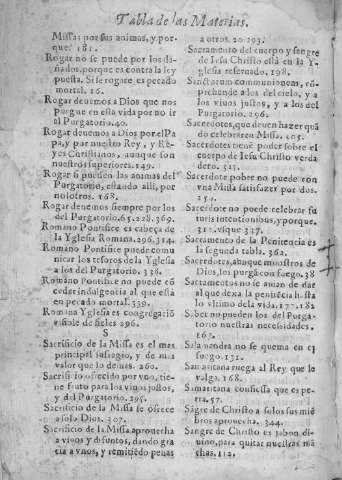 Tabla de las Materias.
Missa: por sus animas, y por-
que. 181.
Rogar no se puede por los da-
ñados, porque es contra la ley
puesta. Si se rogare es pecado
mortal. 16.
Rogar deuemos a Dios que nos
purgue en esta vida por no ir
al Purgatorio. 40.
Rogar deuemos a Dios por el Pa
pa, y por nuestro Rey, y Re-
yes Christianos, aunque son
nuestros superiores. 149.
Rogar si pueden las animas del
Purgatorio, estando alli, por
nosotros. 168.
Rogar deuemos siempre por los
del Purgatorio. 65. 228. 369.
Romano Pontifice es cabeça de
la Yglesia Romana. 296. 314.
Romano Pontifice puede comu
nicar los tesoros de la Yglesia
a los del Purgatorio. 338.
Romano Pontifice no puede cō
ceder indulgencia al que està
en pecado mortal. 339.
Romana Yglesia es congregació
visible de fieles 296.
S
Sacrificio de la Missa es el mas
principal sufragio, y de mas
valor que lo demas. 260.
Sacrificio ofrecido por vno, tie-
ne fruto para los viuos justos,
y del Purgatorio. 295.
Sacrificio de la Missa se ofrece
a solo Dios. 307.
Sacrificio de la Missa aprouecha
a viuos y difuntos, dando gra
cia a vnos, y remitiedo penas
a otros. 20 293.
Sacramento del cuerpo y sangre
de Iesu Christo està en la Y-
glesia reservado. 298.
Sanctorum communionem, cō-
prehende a los del cielo, y a
los viuos justos, y a los del
Purgatorio. 296.
Sacerdotes, que deuen hazer quā
do celebraren Missa. 305.
Sacerdotes tiene poder sobre el
cuerpo de Iesu Christo verda
dero. 325.
Sacerdote pobre no puede con
vna Missa satisfazer por dos.
Sacerdote no puede celebrar su
iuris intentionibus, y porque.
331. vsque 337.
Sacramento de la Penitencia es
la segunda tabla. 362.
Sacerdotes, aunque monstros de
Dios, los purgà con fuego. 38
Sacramentos no se auian de dar
al que dexa la penitecia hasta
lo vltimo de la vida. 177. 181
Saber no pueden los del Purga-
torio nuestras necesidades.
163.
Salamandra no se quema en el
fuego. 131.
Samaritana ruega al Rey, que le
valga. 168.
Samaritana confiessa que es pe-
rra. 57.
Sāgre de Christo a solos sus mié
bros aprouecha. 344.
Sangre de Christo es jabon di-
uino, para quitar nuestras mā
chas. 112.